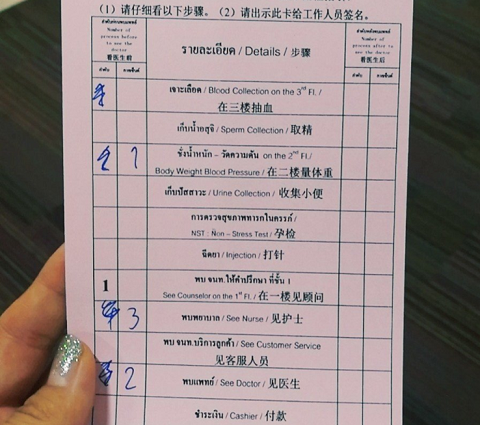 (1) 请仔细看以下步骤。 (2) 请出示此卡给工作人员签名。
ลำดับก่อนพบแพทย์
Number of
process before
to see the
doctor
看医生前
รายละเอียด / Details / 步骤
ลำดับหลังพบแพทย์
Number of
process after to
see the doctor
看医生后
เจาะเลือด / Blood Collection on the 3rd Fl. /
在三楼抽血
เก็บน้ำอสุจิ / Sperm Collection / 取精
7
ชั่งน้ำหนัก – วัดความดัน on the 2nd FI./
Body Weight Blood Pressure / 在二楼量体重
เก็บปัสสาวะ / Urine Collection / 收集小便
การตรวจสุขภาพทารกในครรภ์ /
NST : Non – Stress Test / 孕检
ฉีดยา / Injection / 打针
1
พบ จนท.ให้คำปรึกษา ที่ชั้น 1
See Counselor on the 1st Fl. / 在一楼见顾问
3
พบพยาบาล / See Nurse / 见护士
พบ จนท.บริการลูกค้า / See Customer Service
见客服人员
2
พบแพทย์ / See Doctor / 见医生
ชำระเงิน / Cashier / 付款